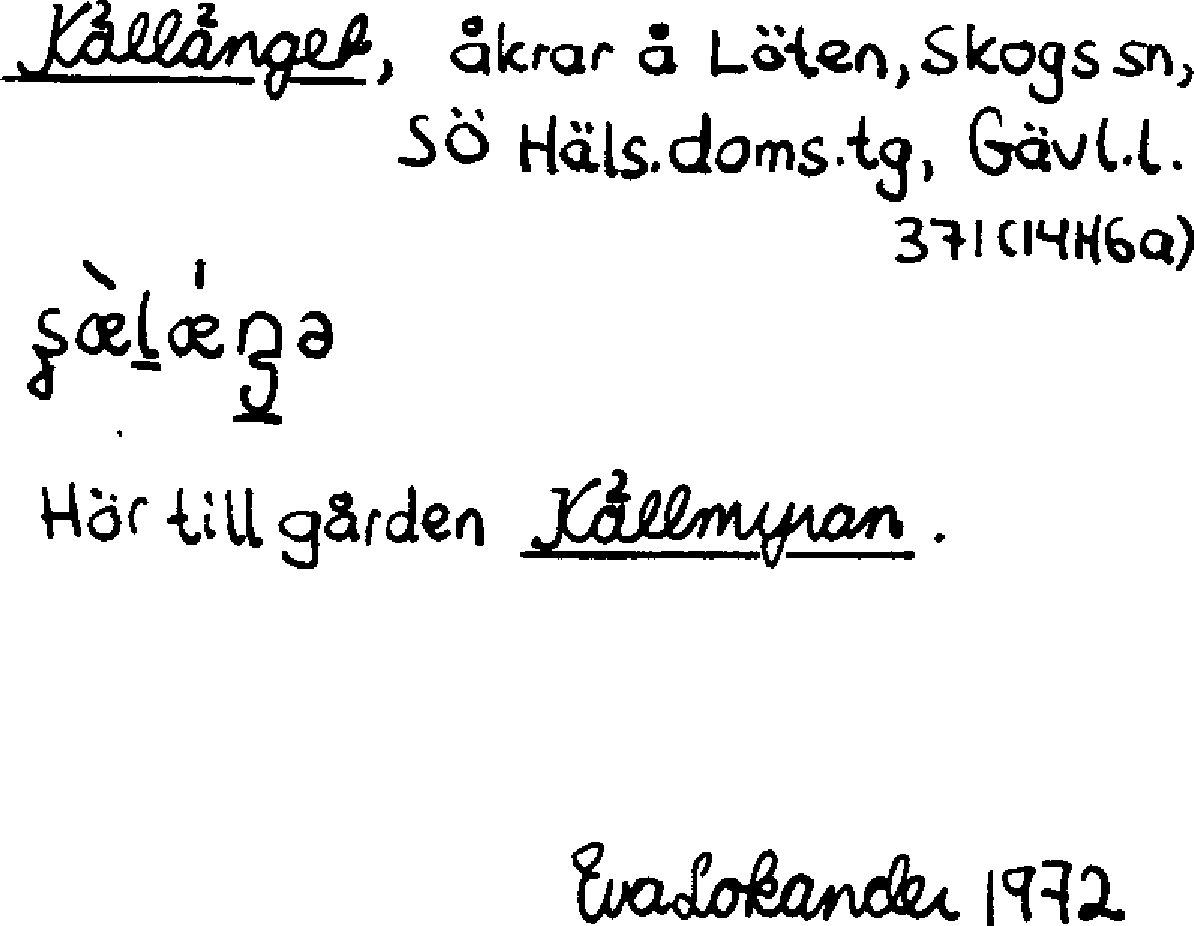 Källänget, åkrar å Löten, Skogs sn,
SÖ Häls. doms. tg, Gävl. l.
371 (14H6a)
Hör till gården Källmyran.
Eva Lokander 1972